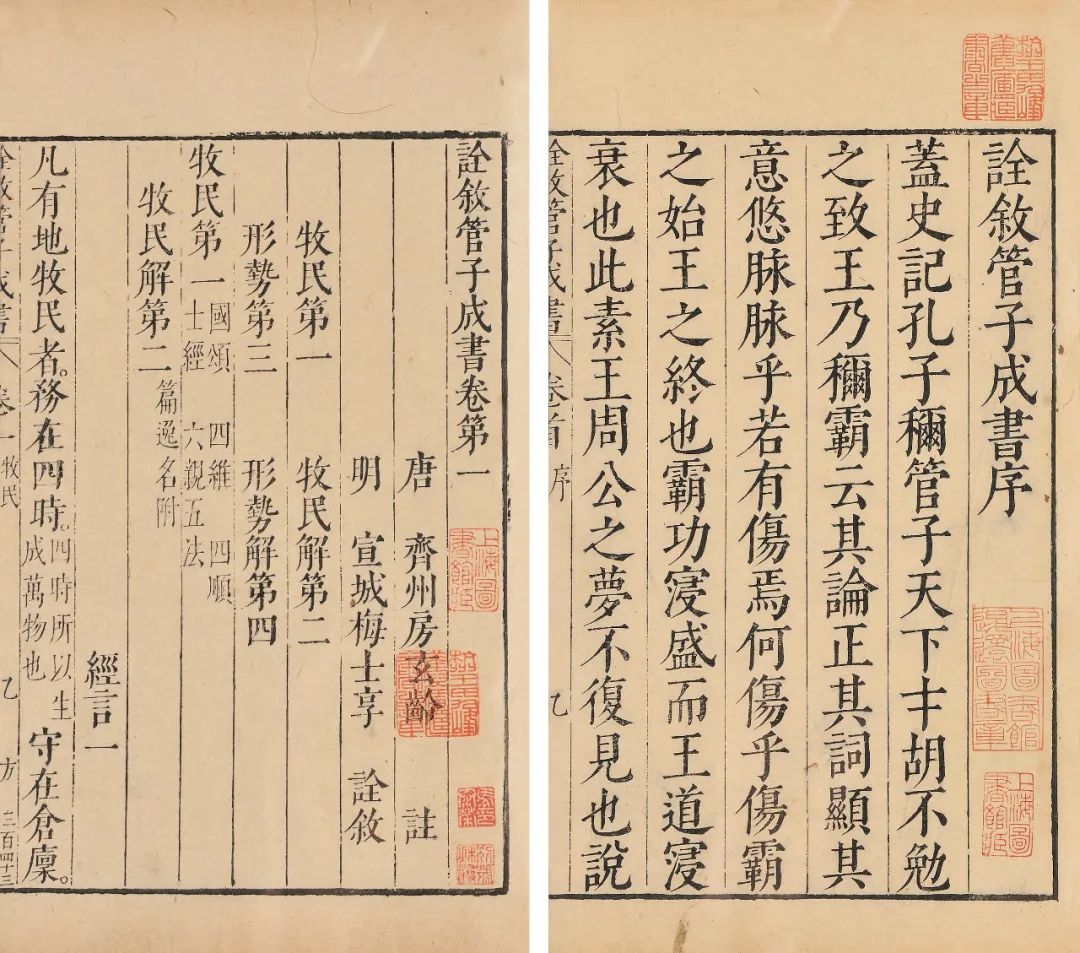 詮敘管子成書序
蓋史記孔子穪管子天下才胡不勉
之致王乃穪霸云其論正其詞顯其
意悠脉脉乎若有傷焉何傷乎傷霸
之始王之終也霸功寖盛而王道寖
衰也此素王周公之夢不復見也說
詮敘管子成書 卷首 序
上海圖書館藏
詮敘管子成書卷第一
唐 齊州房玄齡 註
明 宣城梅士享 詮敘
牧民第一 牧民解第二
形勢第三 形勢解第四
牧民第一 國頌 四維 四順 士經 六親五法
牧民解第二 篇逸名附
經言一
凡有地牧民者。務在四時。四時所以生成萬物也 守在倉廩。
詮敘管子成書 卷一 牧民 方 三百四十三
上海圖書館藏